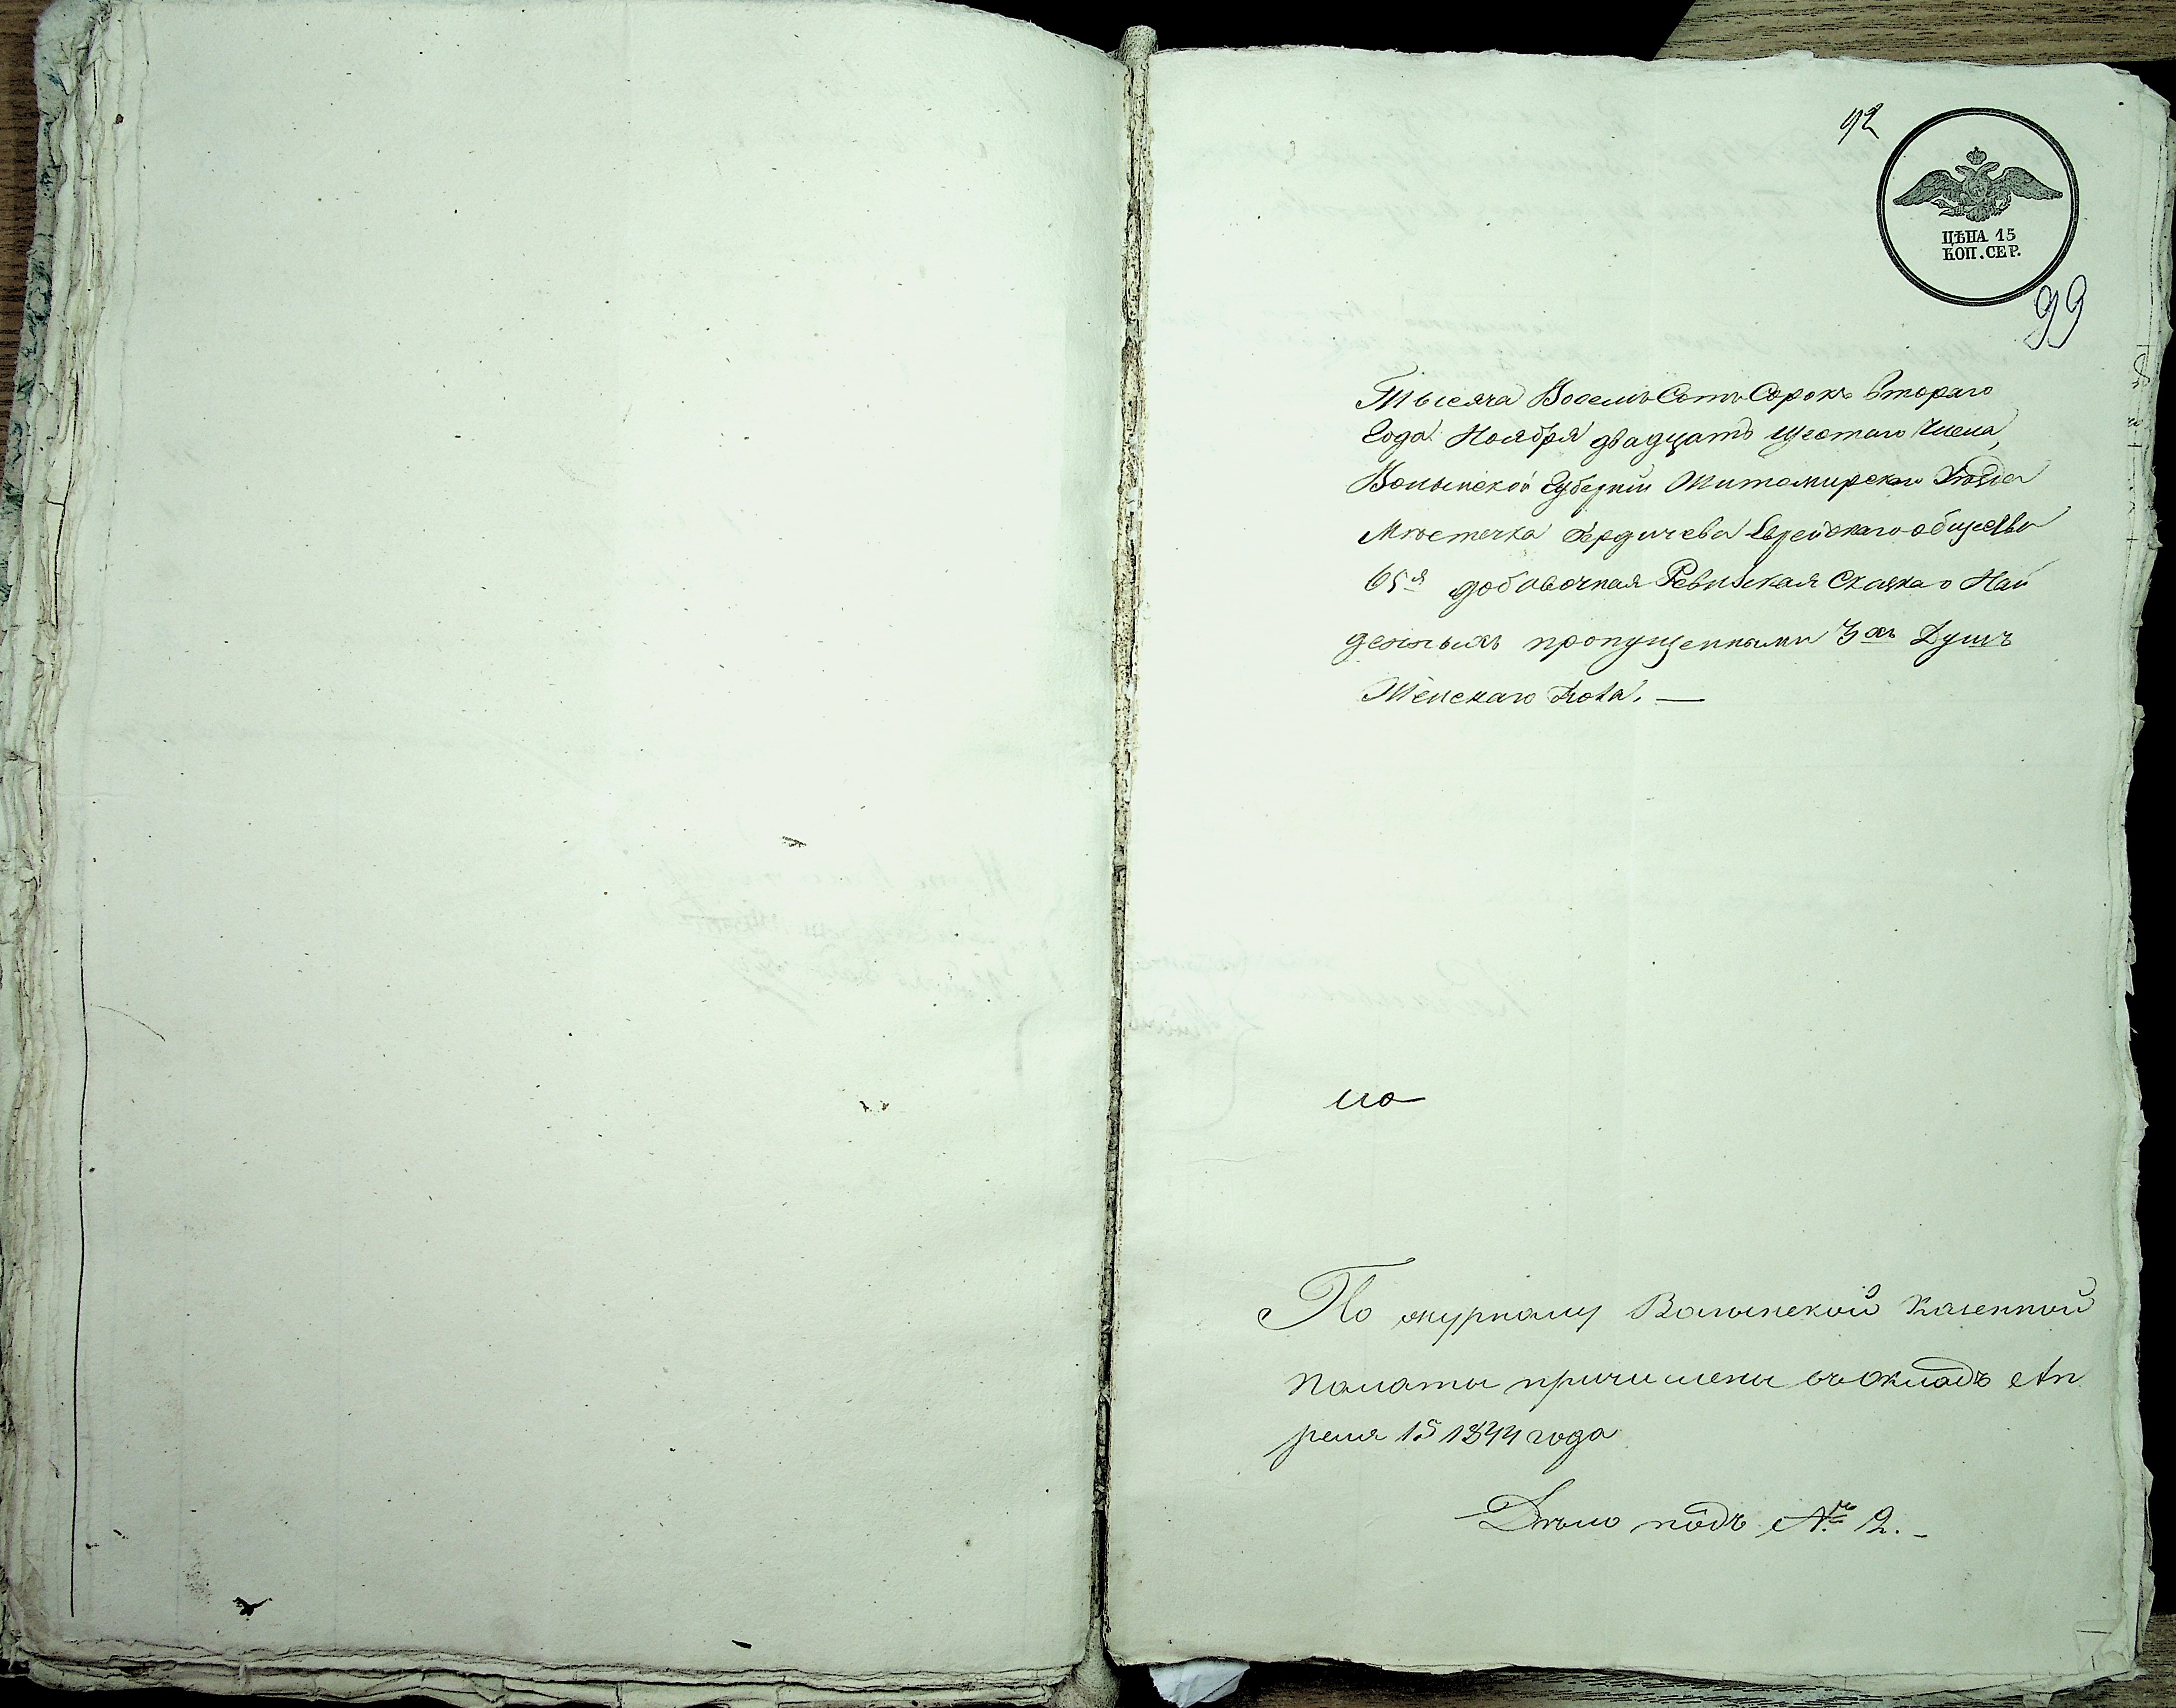 92
ЦѢНА 15
КОП. СЕР.
99
Тысяча Восемъ Сотъ Сорокъ втораго
Года Ноября двадцать шестаго числа,
Волынской Губерніи Житомирскаго Уѣзда
Мѣстечка Бердичева Еврейскаго общества
65я добавочная Ревизская Сказка о Най
денныхъ пропущенными 3хъ Душъ
Женскаго Пола. —
По журналу Волынской Казенной
Палаты причислены въ окладъ Ап
реля 15 1844 года
Дѣло подъ № 2. -